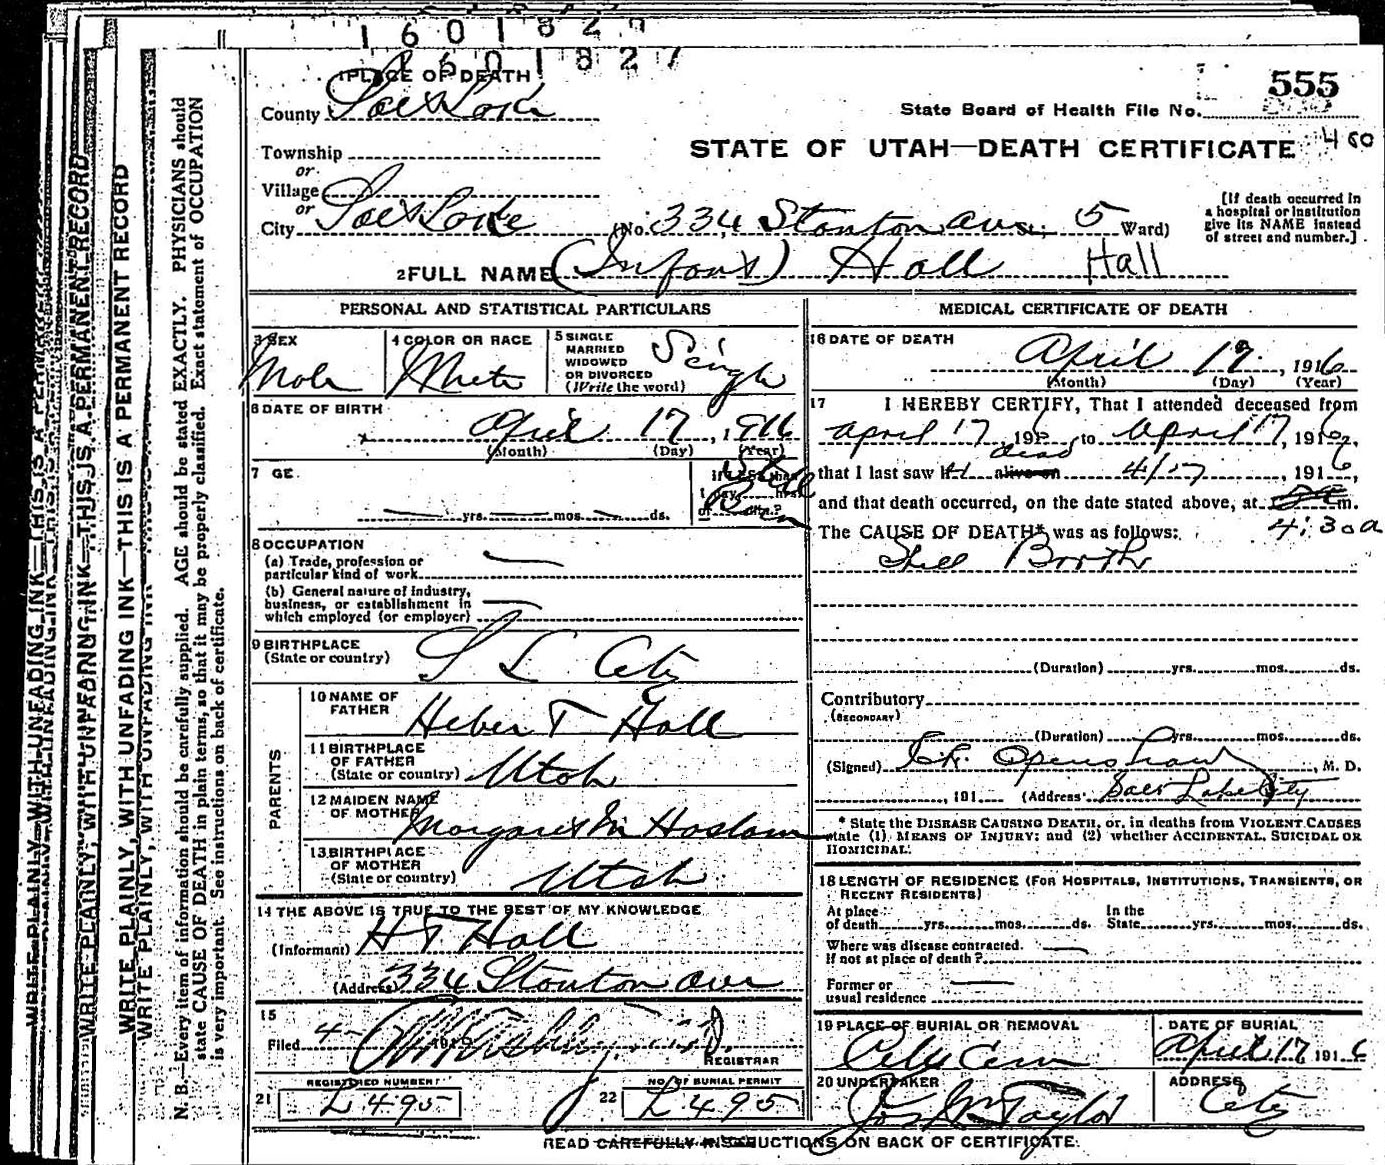 1601827
1601827
1 PLACE OF DEATH
555
State Board of Health File No.
County Salt Lake
STATE OF UTAH—DEATH CERTIFICATE 400
Township
or
Village
or
City Salt Lake (No. 334 Stanton ave.; 5 Ward)
[If death occurred in
a hospital or institution
give its NAME instead
of street and number.]
2 FULL NAME (Infant) Hall Hall
PERSONAL AND STATISTICAL PARTICULARS
3 SEX
Male
4 COLOR OR RACE
White
5 SINGLE
MARRIED
WIDOWED
OR DIVORCED
(Write the word)
Single
6 DATE OF BIRTH
April 17, 1916
(Month) (Day) (Year)
7 GE.
yrs. mos. ds.
If LESS than
1 day, hrs.
or min.?
Still
Born
8 OCCUPATION
(a) Trade, profession or
particular kind of work
(b) General nature of industry,
business, or establishment in
which employed (or employer)
9 BIRTHPLACE
(State or country) S L City
PARENTS
10 NAME OF
FATHER Heber T Hall
11 BIRTHPLACE
OF FATHER
(State or country) Utah
12 MAIDEN NAME
OF MOTHER Margaret M Haslam
13 BIRTHPLACE
OF MOTHER
(State or country) Utah
14 THE ABOVE IS TRUE TO THE BEST OF MY KNOWLEDGE
(Informant) H T Hall
(Address) 334 Stanton ave
15
Filed 4-
REGISTRAR
21 REGISTERED NUMBER
L495
22 NO. OF BURIAL PERMIT
L495
MEDICAL CERTIFICATE OF DEATH
16 DATE OF DEATH
April 17, 1916
(Month) (Day) (Year)
17 I HEREBY CERTIFY, That I attended deceased from
April 17, 1916 to April 17, 1916,
dead
that I last saw h alive on 4/17, 1916
and that death occurred, on the date stated above, at m.
4:30a
The CAUSE OF DEATH* was as follows:
Still Birth
(Duration) yrs. mos. ds.
Contributory
(SECONDARY)
(Duration) yrs. mos. ds.
(Signed) Openshaw, M. D.
, 191 (Address) Salt Lake City
* State the DISEASE CAUSING DEATH, or, in deaths from VIOLENT CAUSES
state (1) MEANS OF INJURY; and (2) whether ACCIDENTAL, SUICIDAL OR
HOMICIDAL.
18 LENGTH OF RESIDENCE (FOR HOSPITALS, INSTITUTIONS, TRANSIENTS, OR
RECENT RESIDENTS)
At place
of death yrs. mos. ds.
In the
State yrs. mos. ds.
Where was disease contracted.
If not at place of death?
Former or
usual residence
19 PLACE OF BURIAL OR REMOVAL
City Cem
DATE OF BURIAL
April 17 1916
20 UNDERTAKER
Jos Wm Taylor
ADDRESS
City
READ CAREFULLY INSTRUCTIONS ON BACK OF CERTIFICATE.
WRITE PLAINLY, WITH UNFADING INK—THIS IS A PERMANENT RECORD
WRITE PLAINLY, WITH UNFADING INK—THIS IS A PERMANENT RECORD
WRITE PLAINLY, WITH UNFADING INK—THIS IS A PERMANENT RECORD
WRITE PLAINLY, WITH UNFADING INK
N. B.—Every item of information should be carefully supplied. AGE should be stated EXACTLY. PHYSICIANS should
state CAUSE OF DEATH in plain terms, so that it may be properly classified. Exact statement of OCCUPATION
is very important. See instructions on back of certificate.